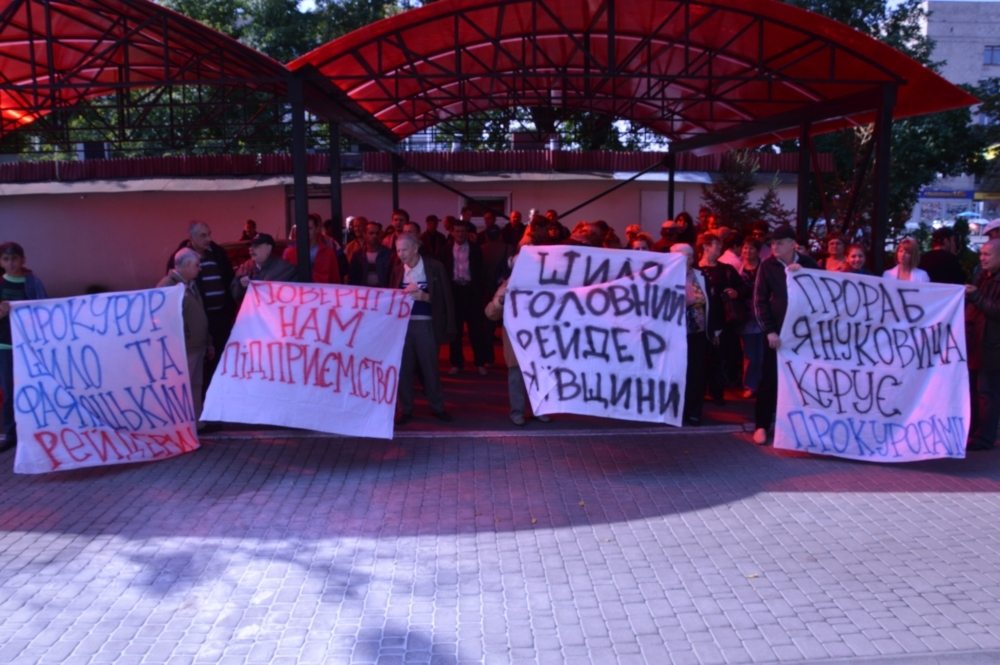 ПРОКУРОР
ШИЛО ТА
РЕЙДЕРИ
ПОВЕРНІТЬ
НАМ
ПІДПРИЄМСТВО
ШИЛО
ГОЛОВНИЙ
РЕЙДЕР
КИЇВЩИНИ
ПРОРАБ
ЯНУКОВИЧА
КЕРУЄ
ПРОКУРОРАМИ!